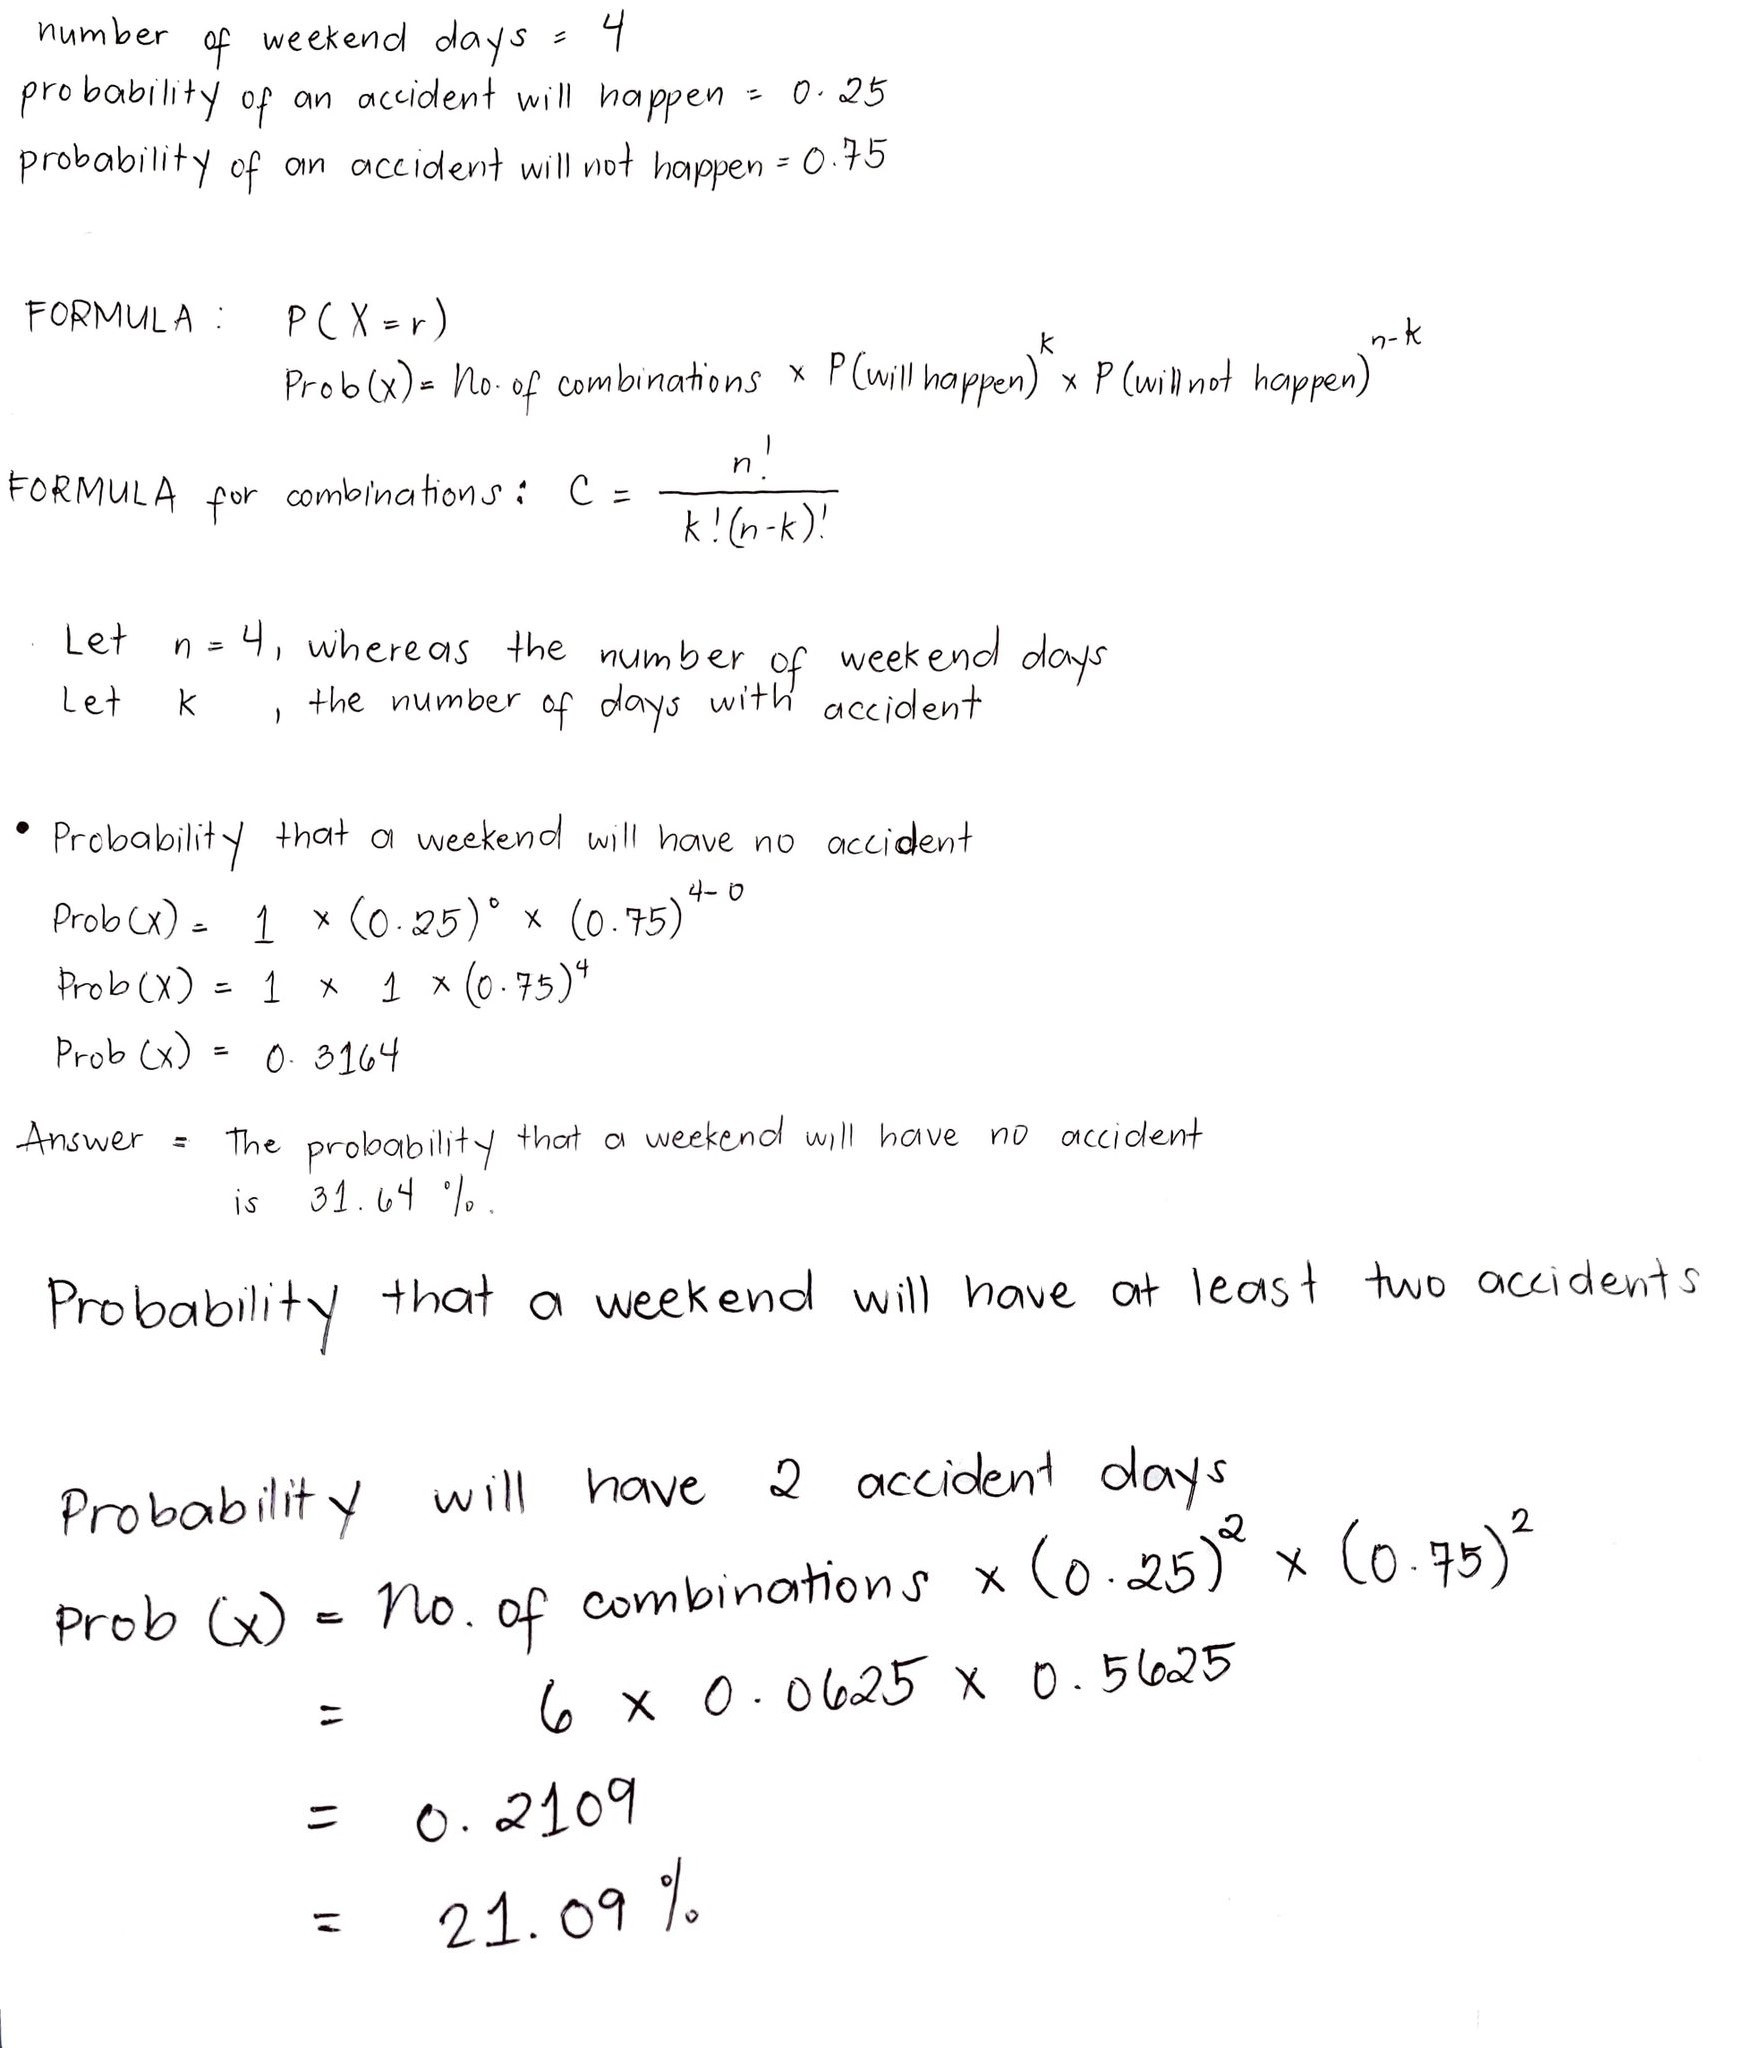 number of weekend days = 4
probability of an accident will happen = 0.25
probability of an accident will not happen = 0.75
FORMULA : P(X=r)
Prob(x) = No. of combinations x P(will happen)^k x P(will not happen)^n-k
FORMULA for combinations: C = n! / k!(n-k)!
Let n = 4, whereas the number of weekend days
Let k , the number of days with accident
• Probability that a weekend will have no accident
Prob(x) = 1 x (0.25)^0 x (0.75)^4-0
Prob(x) = 1 x 1 x (0.75)^4
Prob(x) = 0.3164
Answer = The probability that a weekend will have no accident
is 31.64 %.
Probability that a weekend will have at least two accidents
Probability will have 2 accident days
Prob (x) = No. of combinations x (0.25)^2 x (0.75)^2
= 6 x 0.0625 x 0.5625
= 0.2109
= 21.09 %